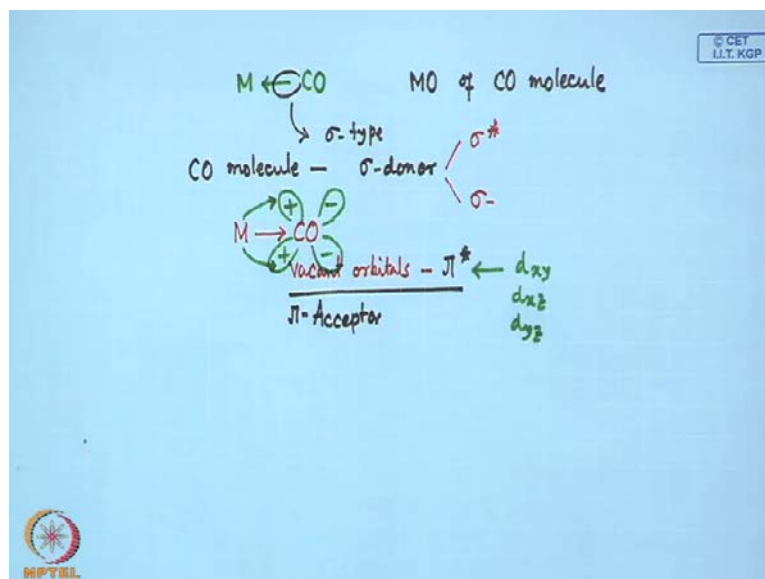 © CET
I.I.T. KGP
M ← CO MO of CO molecule
σ-type
CO molecule – σ-donor
σ*
σ-
+ -
M → CO
+ -
vacant orbitals – π* ← dxy
dxz
dyz
π-Acceptor
NPTEL